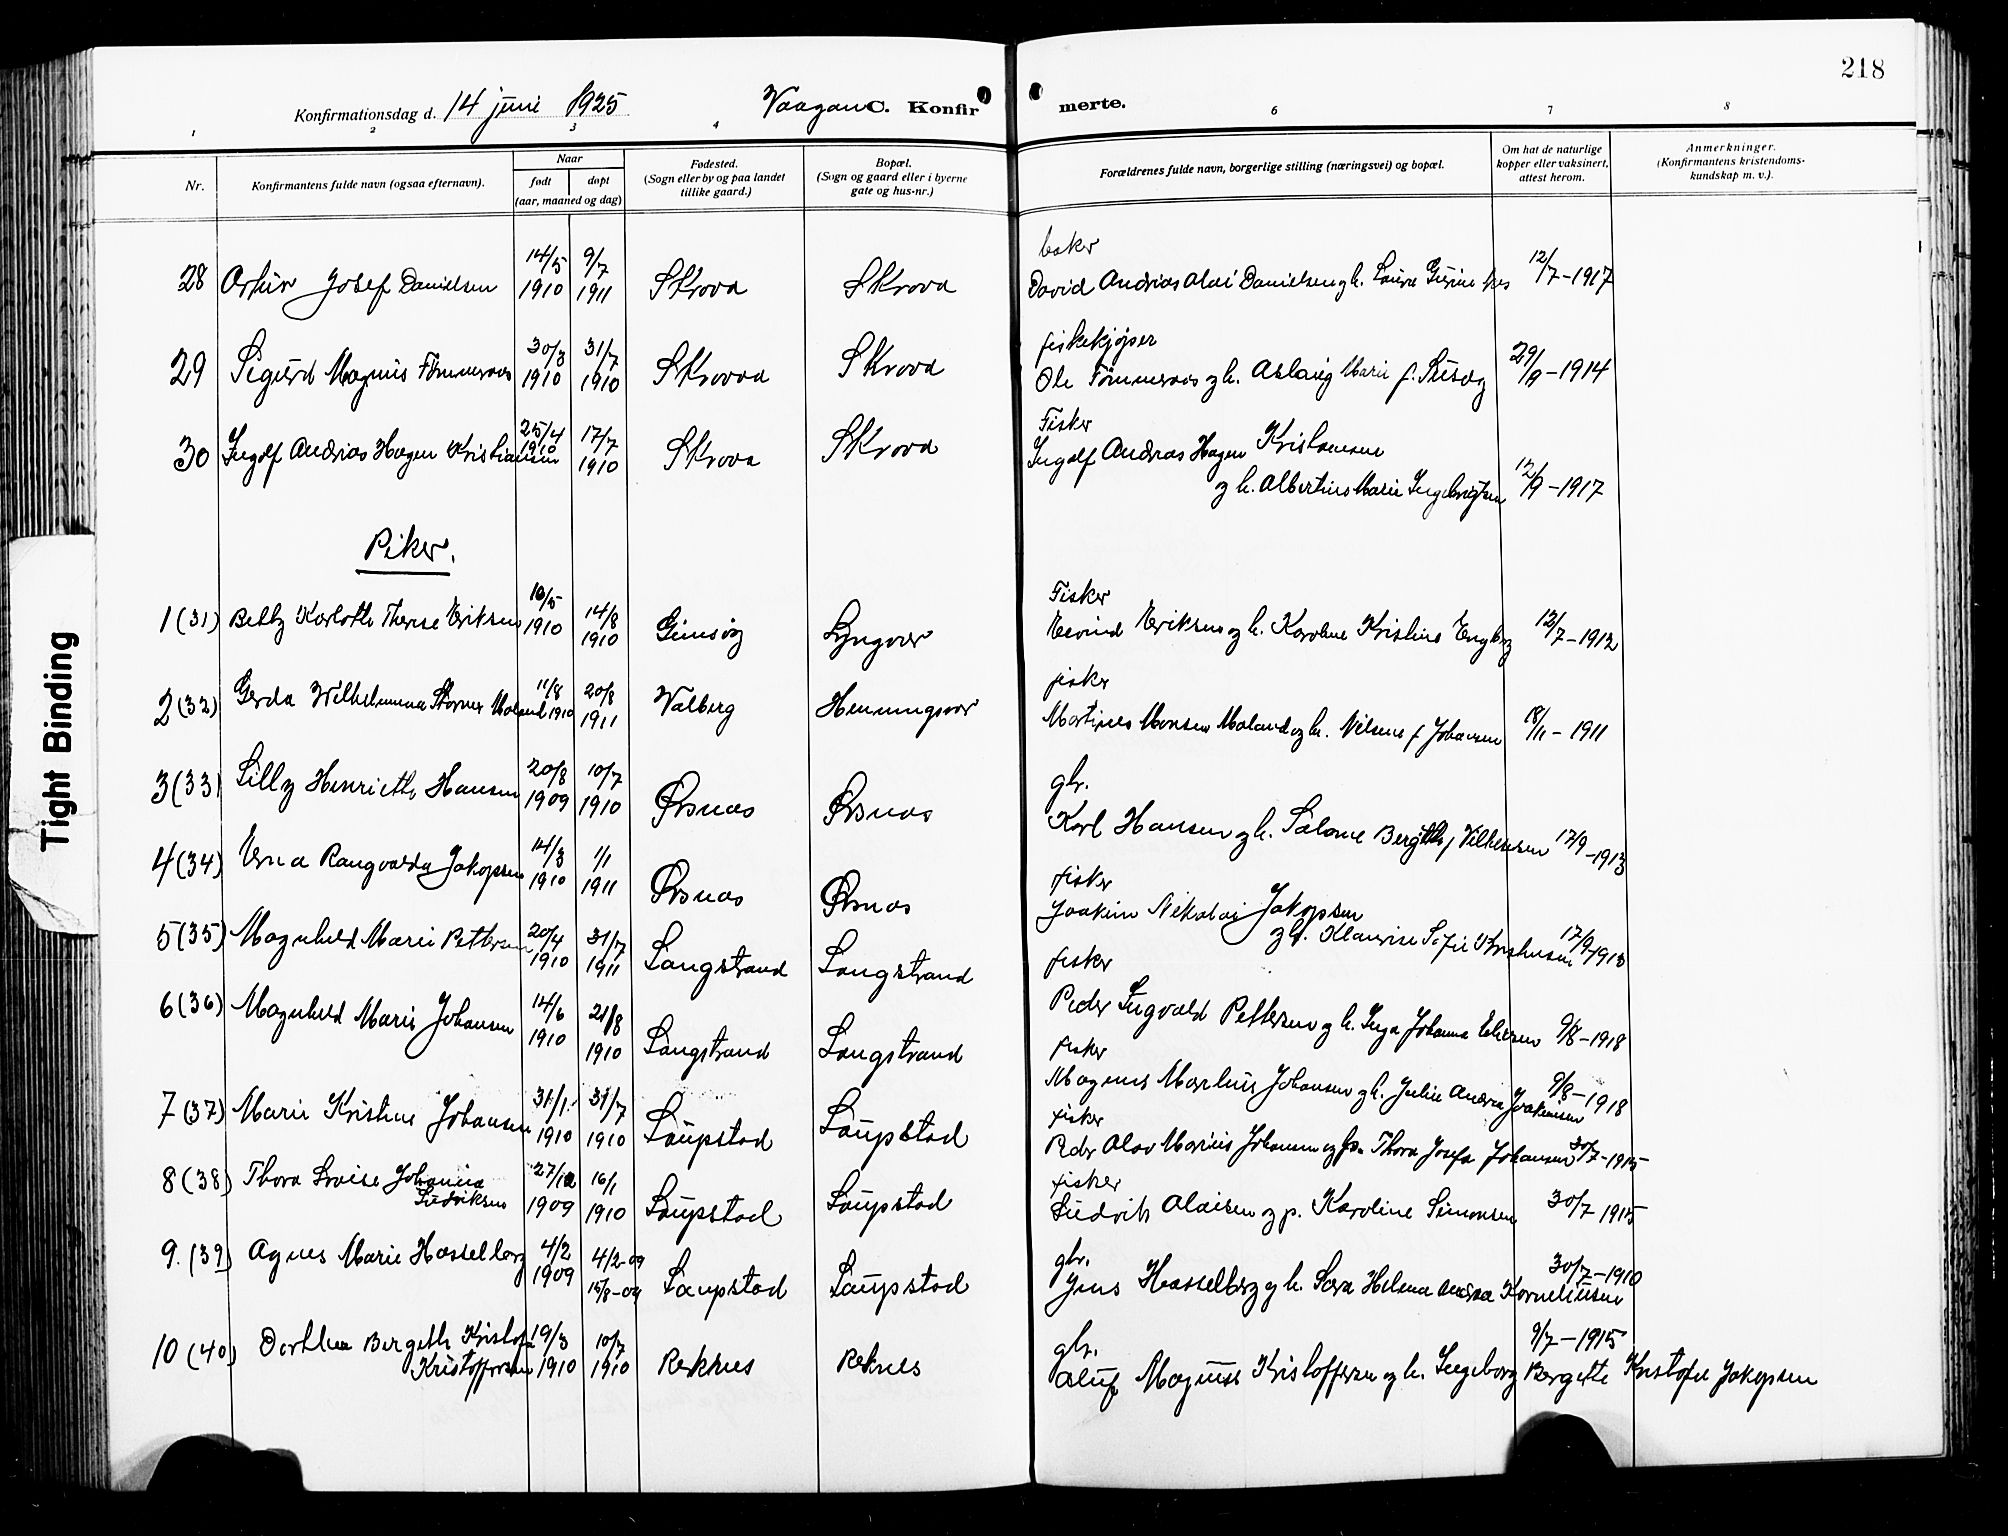 218
Konfirmationsdag d. 14 juni 1925 Vaagan C. Konfirmerte.
1 2 3 4 6 7 8
Nr.
Konfirmantens fulde navn (ogsaa efternavn).
Naar
født
døpt
(aar, maaned og dag)
Fødested.
(Sogn eller by og paa landet
tillike gaard.)
Bopæl.
(Sogn og gaard eller i byerne
gate og hus-nr.)
Forældrenes fulde navn, borgerlige stilling (næringsvei) og bopæl.
Om hat de naturlige
kopper eller vaksinert,
attest herom.
Anmerkninger.
(Konfirmantens kristendoms-
kundskap m. v.).
28 Artur Josef Danielsen 14/5 1910 9/7 1911 Skrova Skrova
baker
David Andreas Olai Danielsen g h. Laura 12/7-1917
29 Sigurd Magnus Tømmeraas 30/3 1910 31/7 1910 Skrova Skrova
fiskekjøper
Ole Tømmeraas g h. Aslaug Marie f. 29/9-1914
30 Ingolf Andreas Hagen Kristiansen 25/4 1910 17/7 1910 Skrova Skrova
Fisker
Ingolf Andreas Hagen Kristiansen
g h. Albertine Marie Ingebrigtsen 12/9-1917
Piker.
1 (31) Betty Karlotte Therese Eriksen 10/5 1910 14/8 1910 Gimsøy Lyngvær
Fisker
Eivind Eriksen g h. Karoline Kristine Engberg 12/7-1912
2 (32) Gerda Wilhelmina Moland 11/8 1910 20/8 1911 Valberg Henningsvær
fisker
Martines Monsen Moland g h. Nilsine f Johansen 18/11-1911
3 (33) Lilly Henriette Hansen 20/8 1909 10/7 1910 Ørsnes Ørsnes
gbr.
Karl Hansen g h. Salome Bergitte f Vilhelmsen 17/9-1913
4 (34) Erna Rangvalda Jakopsen 14/3 1910 1/1 1911 Ørsnes Ørsnes
fisker
Joakim Nikolai Jakopsen
g h. Sofie 17/9-1913
5 (35) Magnhild Marie Pettersen 20/4 1910 31/7 1911 Langstrand Langstrand
fisker
Peder Ingvald Pettersen g h. Inga Johanna 9/8-1918
6 (36) Magnhild Marie Johansen 14/6 1910 21/8 1910 Langstrand Langstrand
fisker
Magnus Marelius Johansen g h. Julie Andrea Joakimsen 9/8-1918
7 (37) Marie Kristine Johansen 31/1 1910 31/7 1910 Laupstad Laupstad
fisker
Peder Olav Marius Johansen g h. Thora Josefa Johansen 30/7-1915
8 (38) Thora Lovise Johanna
Ludviksen 27/12 1909 16/1 1910 Laupstad Laupstad
fisker
Ludvik Olaisen g p. Karoline Simonsen 30/7 1915
9. (39) Agnes Marie Hasselberg 4/2 1909 4/2-09 15/8-09 Laupstad Laupstad
gbr.
Jens Hasselberg g h. Sara Helena Andrea Korneliussen 30/7-1910
10 (40) Dorthea Bergette Kristofa
Kristoffersen 19/3 1910 10/7 1910 Reknes Reknes
gbr.
Oluf Magnus Kristoffersen g h. Ingeborg Bergette Kristofa Jakopsen 9/7-1915
Tight Binding